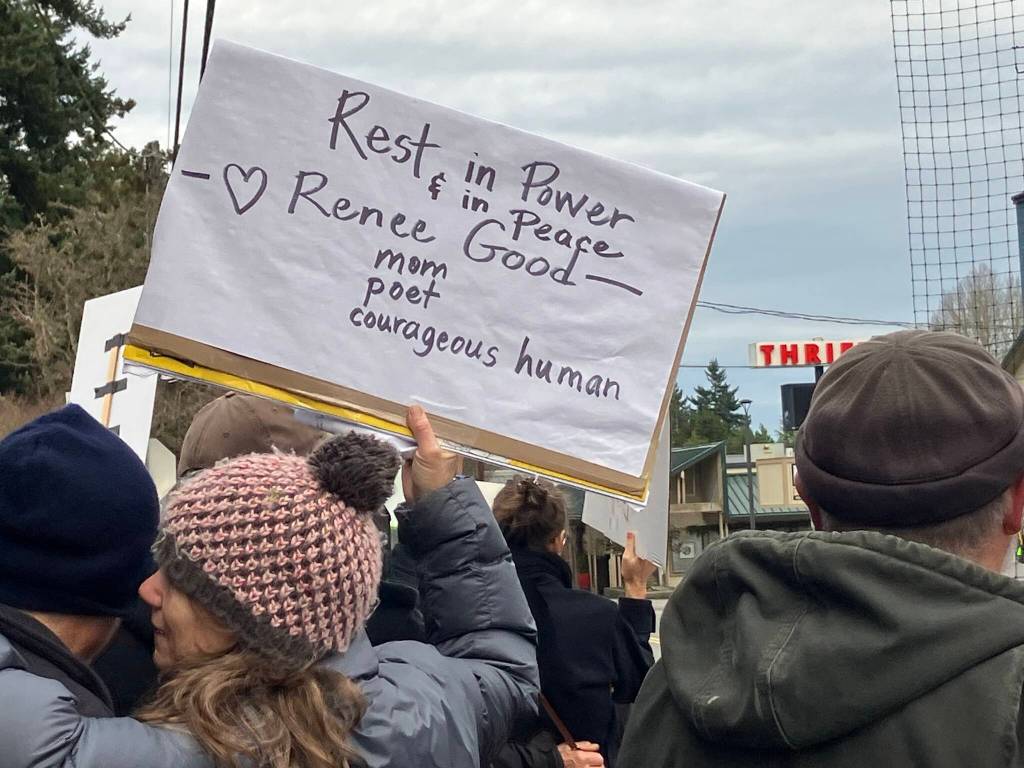 Rest in Power
& in Peace
- ♡ Renee Good -
mom
poet
courageous human
THRIF